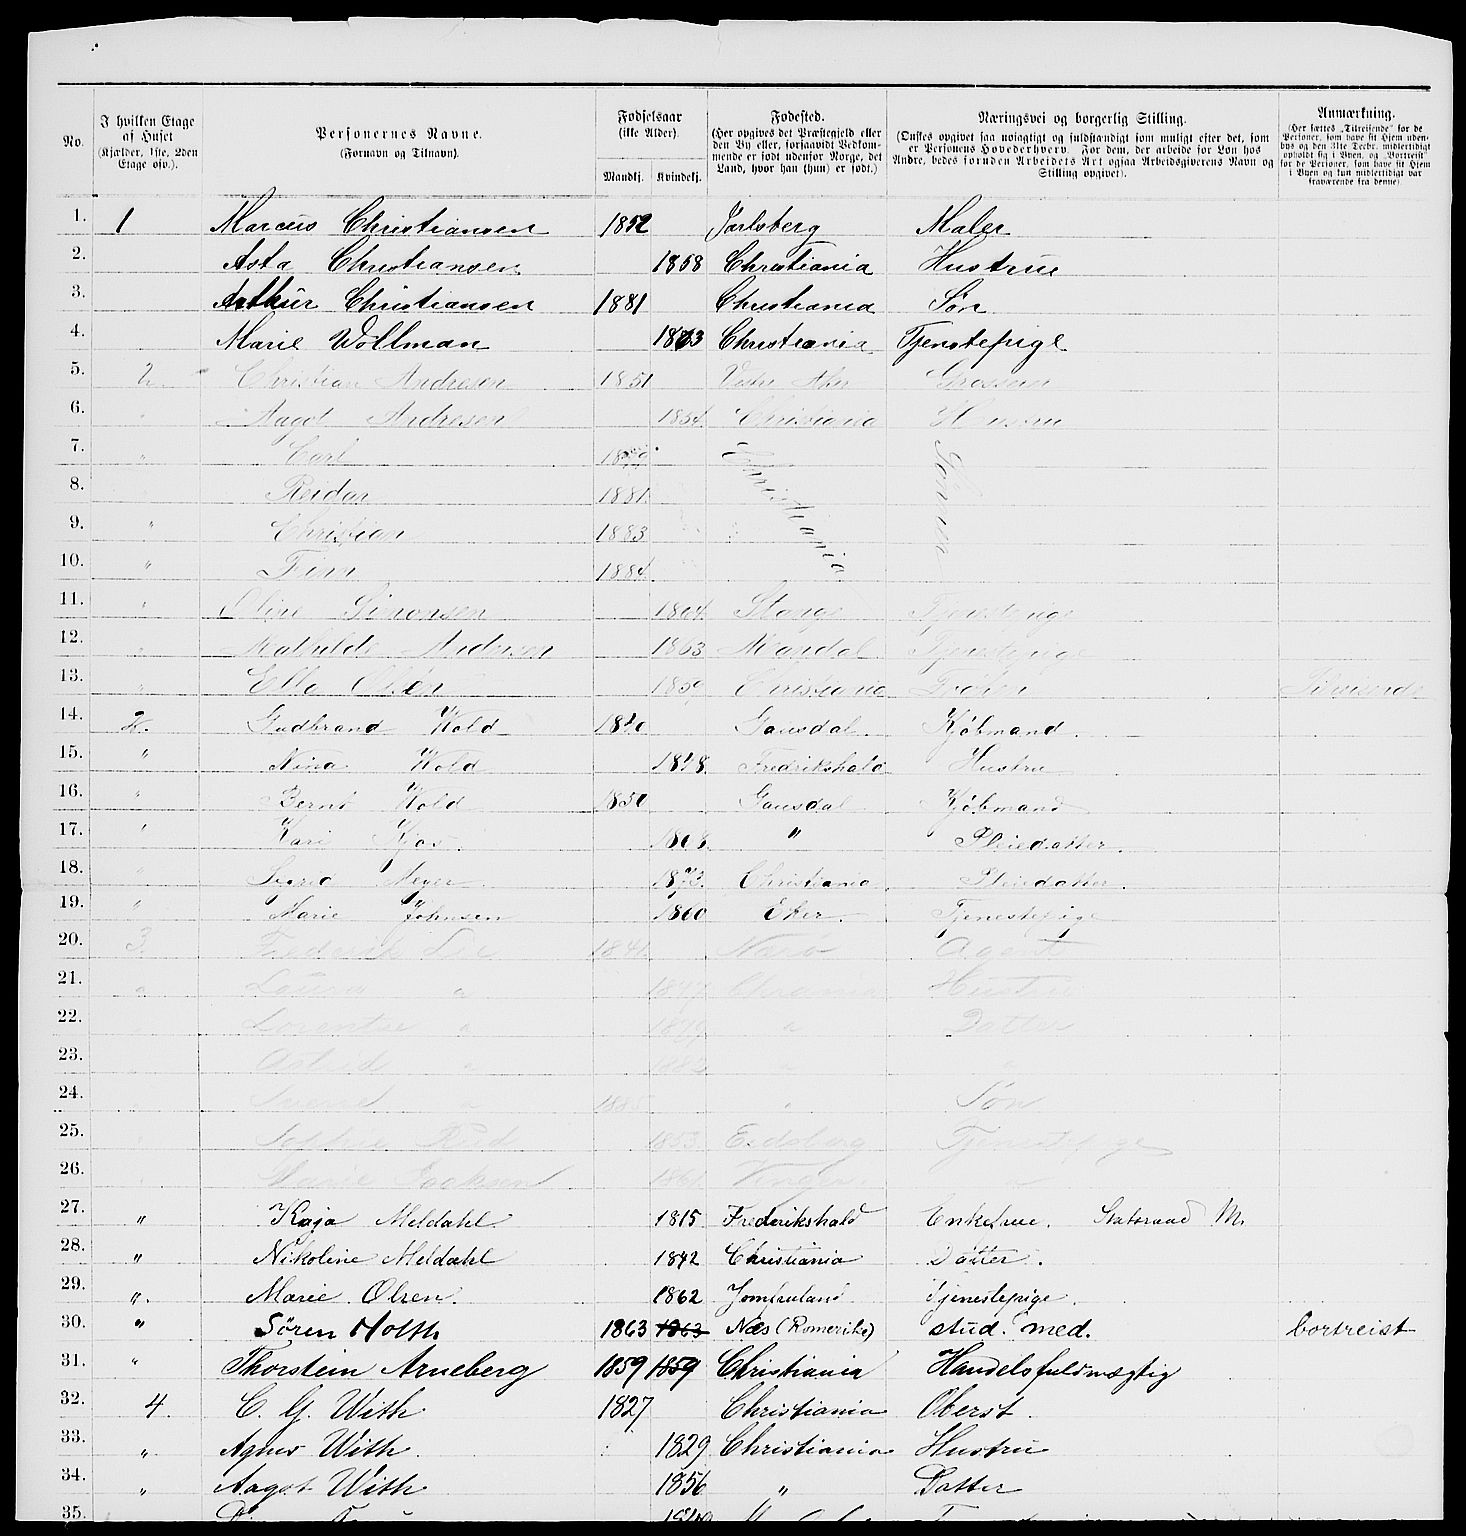 No.
I hvilken Etage af Huset
(Kjælder, 1ste, 2den Etage osv.).
Personernes Navne.
(Fornavn og Tilnavn).
Fødselsaar
(ikke Alder).
Mandkj. Kvindekj.
Fødested.
(Her opgives det Præstegjeld eller den By eller, forsaavidt Vedkommende er født udenfor Norge, det Land, hvor han (hun) er født.)
Næringsvei og borgerlig Stilling.
(Ønskes opgivet saa nøiagtigt og fuldstændigt som muligt efter det, som er Personens Hovederhverv. For dem, der arbeide for Løn hos Andre, bedes foruden Arbeidets Art ogsaa Arbeidsgiverens Navn og Stilling opgivet).
Anmærkning.
(Her sættes „Tilreisende" for de Personer, som have sit Hjem udenbys og den 31te Decbr. midlertidigt opholdt sig i Byen, og „Bortreist" for de Personer, som have sit Hjem i Byen og kun midlertidigt var fraværende fra denne).
1. 1 Marcus Christiansen 1852 Jarlsberg Maler
2. Asta Christiansen 1858 Christiania Hustrue
3. Arthur Christiansen 1881 Christiania Søn
4. Marie Wollman 1863 Christiania Tjenstepige
5. 2 Christian Andresen 1851 Vestre Aker Grosserer
6. " Aagot Andresen 1854 Christiania Hustru
7. " Carl Christiania Sønner
8. Reidar 1881
9. " Christian 1883
10. " Finn 1884
11. " Oline Simonsen 1864 Stange Tjenestepige
12. " Mathilde Andersen 1863 Mandal Tjenestepige
13. " Ella Olsen 1859 Christiania Frøken Tilreisende
14. 2. Gudbrand Wold 1840 Gausdal. Kjøbmand.
15. " Nina Wold 1848 Fredrikshald Hustru
16. " Bernt Wold 1850 Gausdal Kjøbmand
17. " Kari Kjos. 1868 " Pleiedatter.
18. " Sigrid Meyer 1873. Christiania Pleiedatter.
19. " Marie Johnsen 1860 Eker. Tjenestepige
20. 3. Frederik Lie 1841 Nærø Agent
21. " Laura " 1847 Chrania Hustru
22. Lorentze " 1879 " Datter
23. Astrid " 1882 " "
24. Sverre " 1885 " Søn
25. Sophie Rud 1853 Eidsberg Tjenestepige
26. Marie Isaksen 1861 Vinger. "
27. " Kaja Meldahl 1815 Frederikshald Enkefrue. Statsraad M.
28. " Nikoline Meldahl 1842 Christiania Datter.
29. ". Marie Olsen. 1862 Jomfruland Tjenestepige.
30. " Søren Holth 1863 1863 Næs (Romerike) stud. med. bortreist
31. " Thorstein Arneberg 1859 1859 Christiania Handelsfuldmægtig
32. 4. C. G. With 1827 Christiania Oberst.
33. " Agnes With. 1829 Christiania Hustru
34. " Aagot With 1856 " Datter
35.